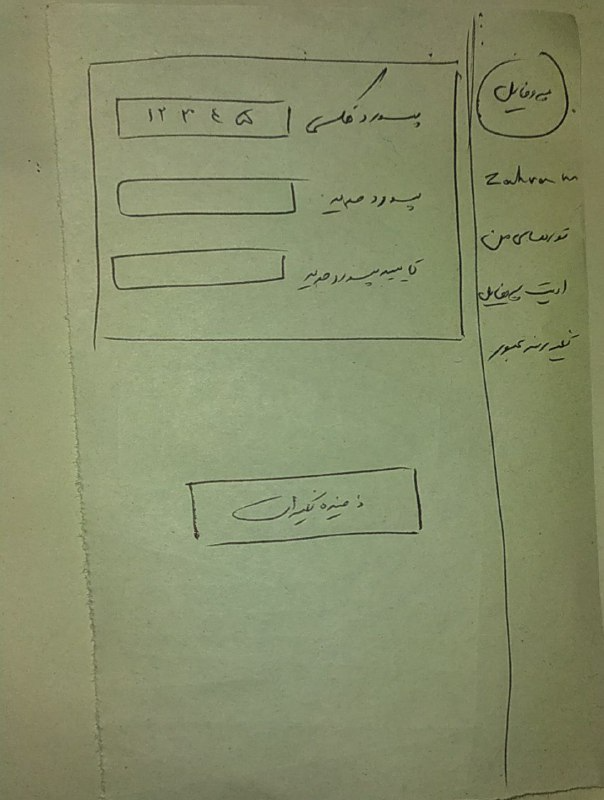 پروفایل
Zahra m
تورهای من
ادیت پروفایل
تغییر رمز عبور
پسورد فعلی
۱۲ ۳ ٤ ۵
پسورد جدید
تایید پسورد جدید
ذخیره تغییرات